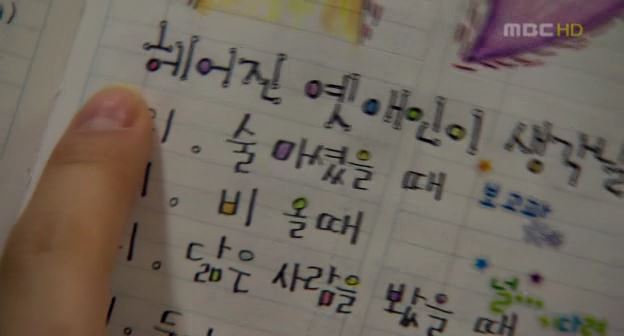 MBC HD
헤어진 옛애인이 생각날
1. 술 마셨을 때
보고파
1. 비 올때
1. 닮은 사람을 봤을 때
널...